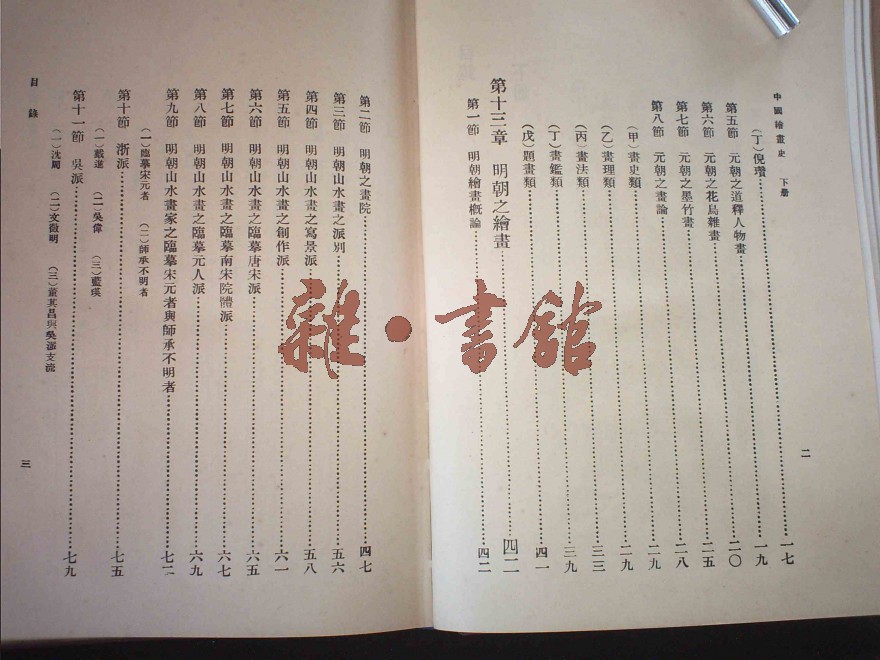 中國繪畫史　下册
二
（丁）倪瓚………一七
第五節　元朝之道釋人物畫………一九
第六節　元朝之花鳥雜畫………二〇
第七節　元朝之墨竹畫………二五
第八節　元朝之畫論………二八
（甲）畫史類………二九
（乙）畫理類………二九
（丙）畫法類………三三
（丁）畫鑑類………三九
（戊）題畫類………四一
第十三章　明朝之繪畫………四二
第一節　明朝繪畫概論………四二
第二節　明朝之畫院………四七
第三節　明朝山水畫之派別………五六
第四節　明朝山水畫之寫景派………五八
第五節　明朝山水畫之創作派………六一
第六節　明朝山水畫之臨摹唐宋派………六五
第七節　明朝山水畫之臨摹南宋院體派………六七
第八節　明朝山水畫之臨摹元人派………六九
第九節　明朝山水畫家之臨摹宋元者與師承不明者………七二
（一）臨摹宋元者　（二）師承不明者
第十節　浙派………七五
（一）戴進　（二）吳偉　（三）藍瑛
第十一節　吳派………七九
（一）沈周　（二）文徵明　（三）董其昌與吳派支流
目錄
三
雜·書館